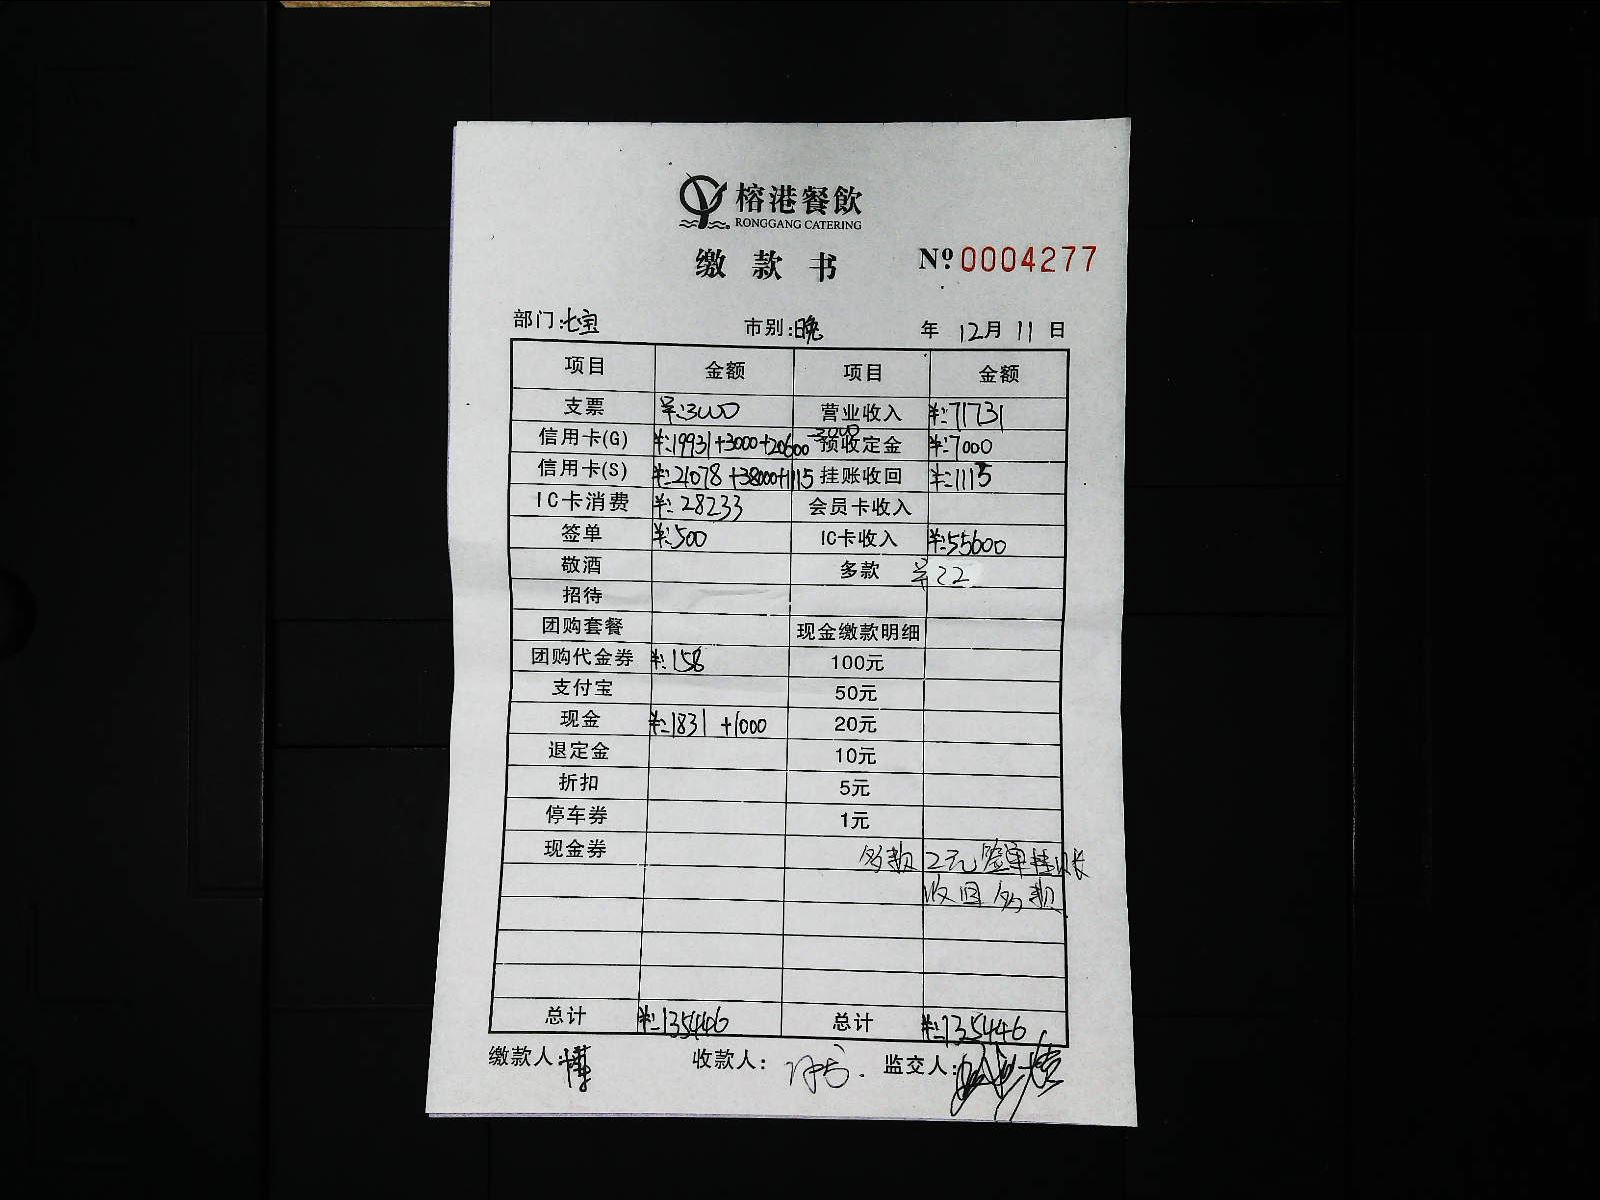 榕港餐飲
RONGGANG CATERING
缴款书 Nº 0004277
部门:七宝 市别:晚 年 12月 11 日
项目 金额 项目 金额
支票 ¥:3000 营业收入 ¥:71731
信用卡(G) ¥:19931+3000+20600 -3000 预收定金 ¥:7000
信用卡(S) ¥:21078+38000+1115 挂账收回 ¥:1115
IC卡消费 ¥:28233 会员卡收入
签单 ¥:500 IC卡收入 ¥:55600
敬酒 多款 22
招待
团购套餐 现金缴款明细
团购代金券 ¥:158 100元
支付宝 50元
现金 ¥:1831 +1000 20元
退定金 10元
折扣 5元
停车券 1元
现金券 多款 2元签单挂
收回多款
总计 ¥:135446 总计 ¥:135446
缴款人: 收款人: 监交人: